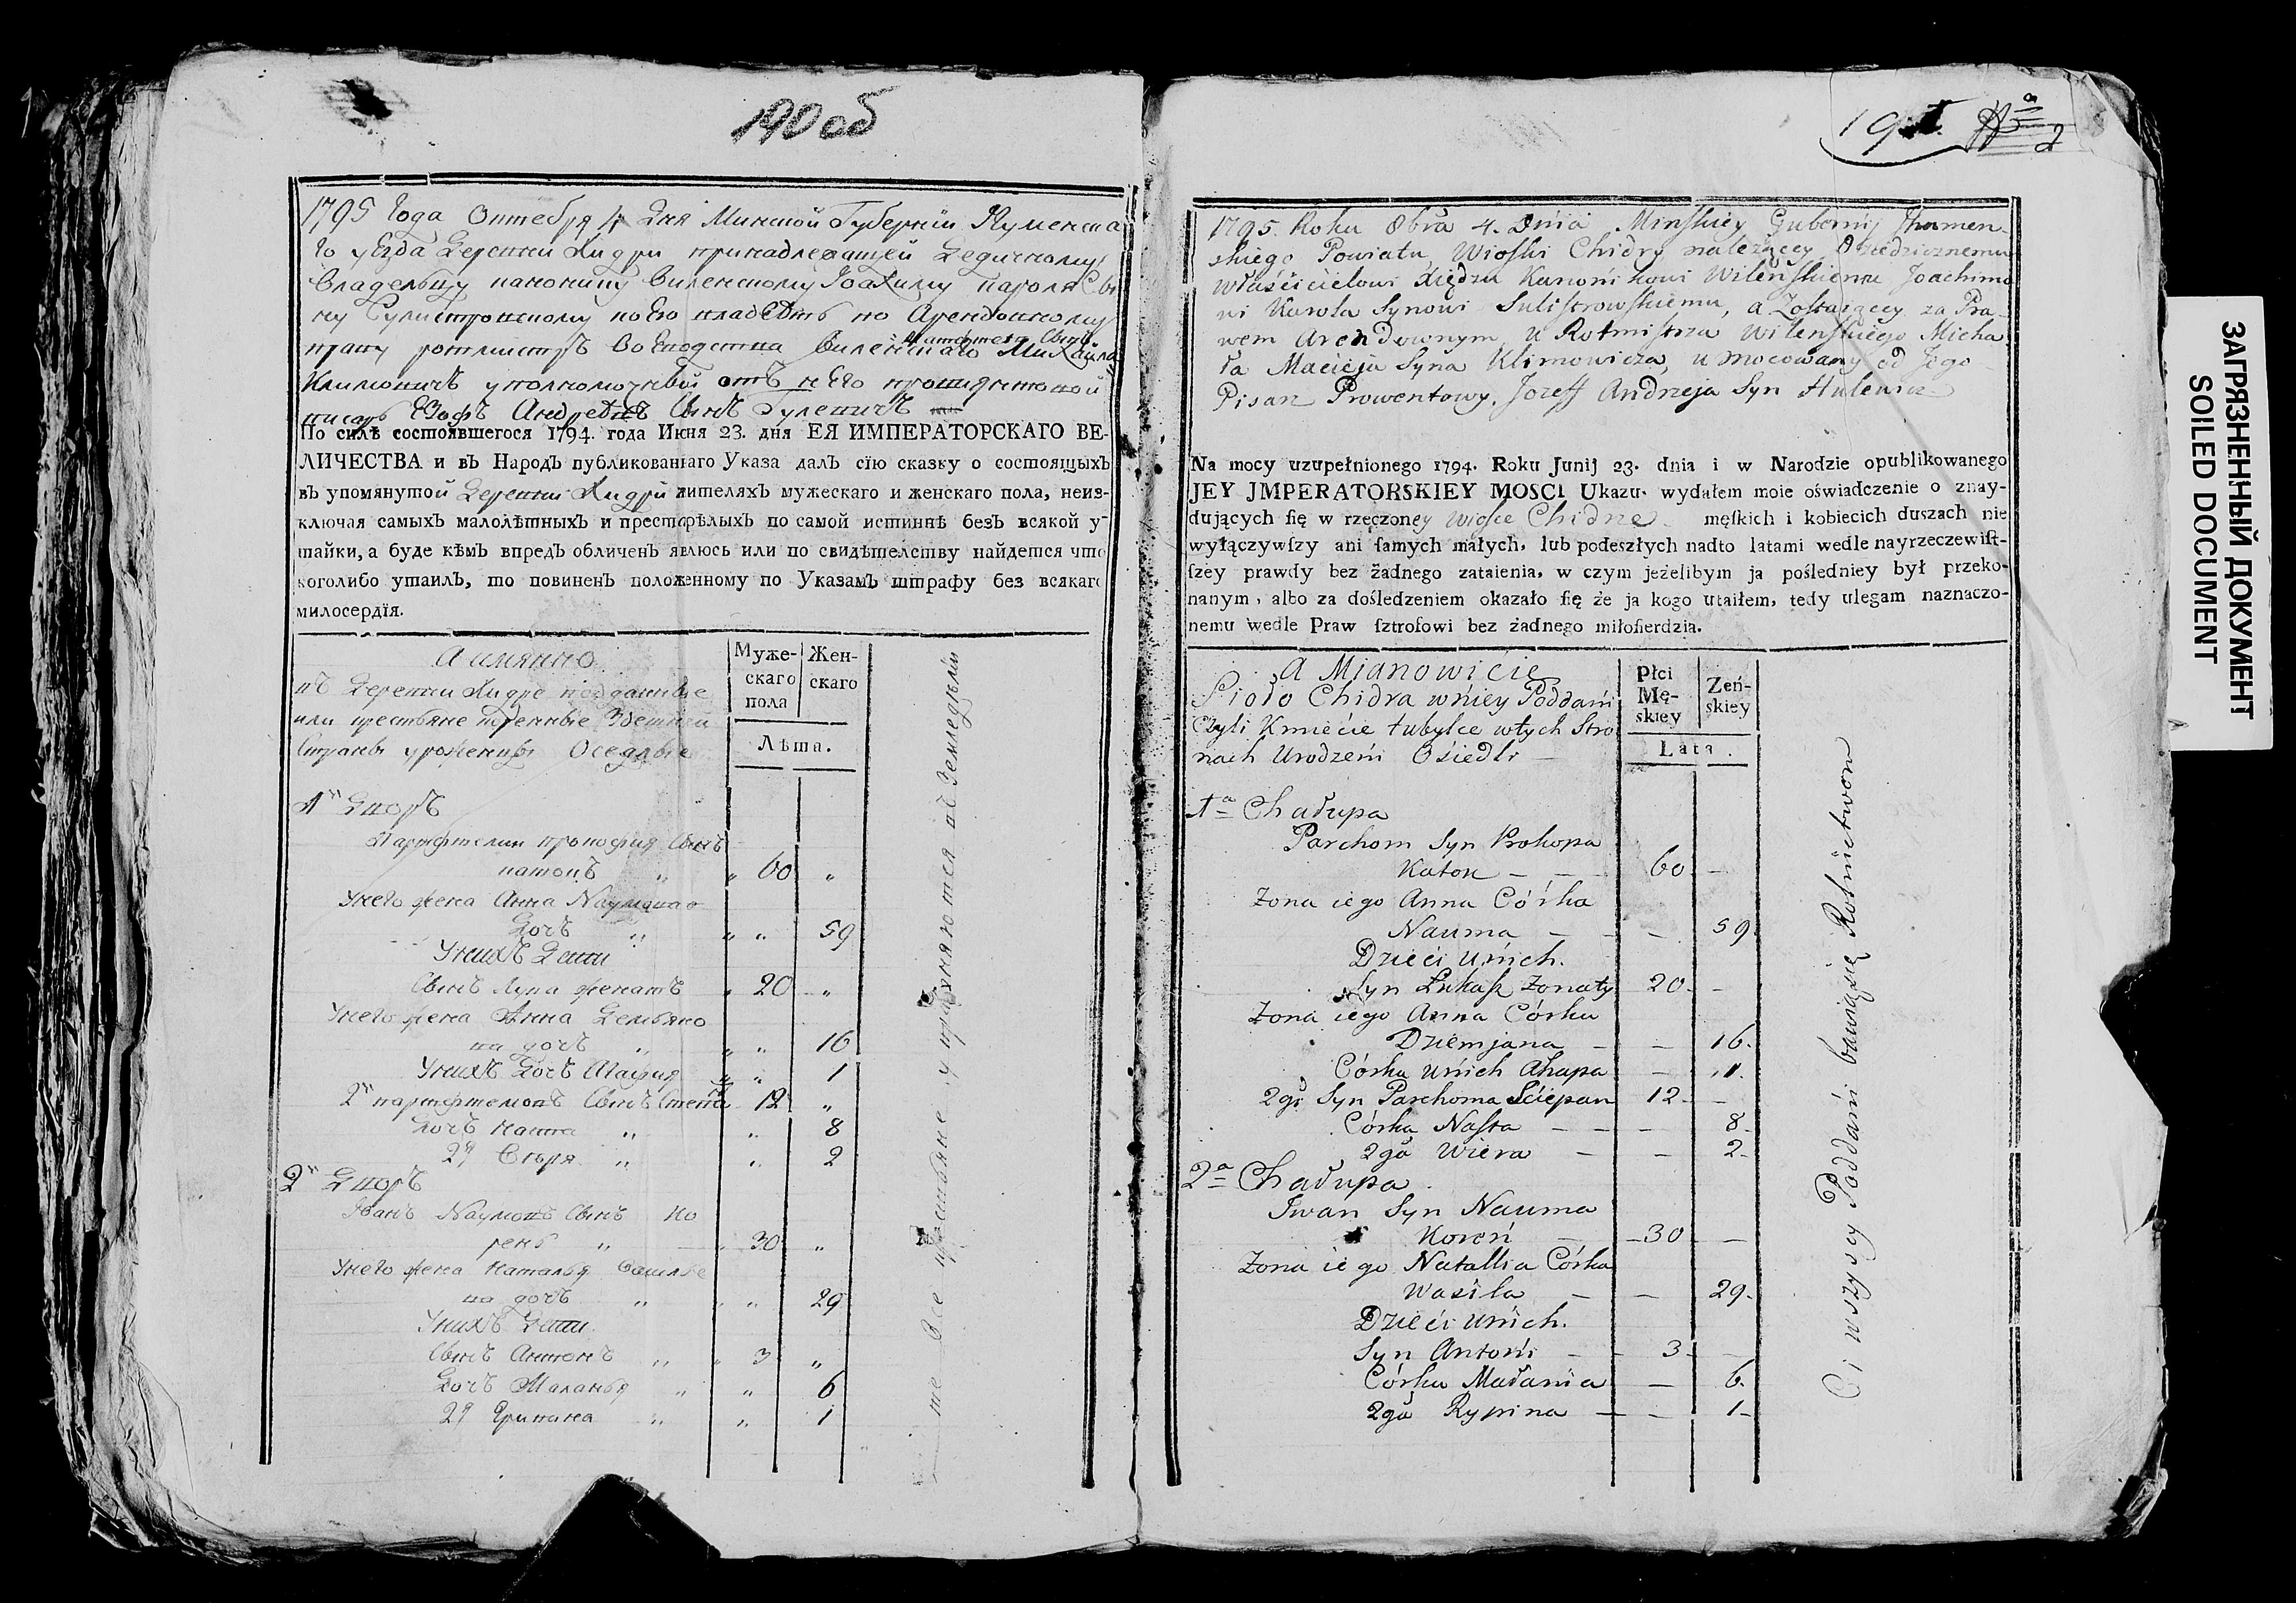 190 об
1795 года Октебря 4 дня Минской Губернiи Игуменска
го уезда деревни Хидри принадлежащей Дедичному
Владельцу канонику Виленскому Iоахиму Кароля Сы
ну Сулистровскому во его владеть по Арендовному
праву ротмистръ Воеводства Виленскаго Матфея Сынъ Михайла
Климовичъ уполномочный отъ него провиянтовой
писарь Езофъ Андреевъ Сынъ Гулевичъ
По силѣ состоявшегося 1794. года Июня 23. дня ЕЯ ИМПЕРАТОРСКАГО ВЕ-
ЛИЧЕСТВА и въ Народъ публикованнаго Указа далъ сїю сказку о состоящыхъ
въ упомянутой деревни Хидри жителяхъ мужескаго и женскаго пола, неиз-
ключая самыхъ малолѣтныхъ и престарѣлыхъ по самой истиннѣ безъ всякой у-
тайки, а буде кѣмъ впредъ обличенъ явлюсь или по свидѣтелству найдется что
коголибо утаилъ, то повиненъ положенному по Указамъ штрафу без всякаго
милосердїя.
А имянно
въ деревни Хидре подданные
или крестьяне Здешней
Страны уроженцы Оседлые
Муже-
скаго
пола
Жен-
скаго
Лѣта.
1й Дворъ
Партфтелин Прокофия Сынъ
катокъ „ „ 60 „
У него жена Анна Наумова
дочъ „ „ „ 59
У нихъ Дети
Сынъ Лука женатъ „ 20 „
У него жена Анна Демьяно
ва дочъ „ „ „ 16
У нихъ Дочъ Агафия „ „ 1
2й партфтелонъ Сынъ Степа 12 „
дочъ наста „ „ 8
2я Вѣра „ „ 2
2й Дворъ
Iванъ Наумовъ Сынъ Ко
рень „ „ 30 „
У него жена Наталья Василье
ва дочъ „ „ „ 29
У нихъ Дети
Сынъ Антонъ „ „ 3 „
Дочъ Маланья „ „ 6
2я Ярипина „ „ 1
Все крестьяне упражняются въ Земледѣлии
191 № 2
1795. Roku 8bra 4. Dnia Minskiey Gubernij Jhumen-
skiego Powiatu, Wioski Chidry należącey Dziedzicznemu
właścicielowi Xiędzu Kanonikowi Wileńskiemu Joachimo
wi Karola Synowi Sulistrowskiemu, a Zostaiącey za Pra
wem Arendownym u Rotmistrza Wilenskiego Micha
ła Macieja Syna Klimowicza, umocowany od Jego
Pisarz Prowentowy, Jozeff Andrzeja Syn Hulewicz
Na mocy uzupełnionego 1794. Roku Junij 23. dnia i w Narodzie opublikowanego
JEY JMPERATORSKIEY MOSCI Ukazu. wydałem moie oświadczenie o znay-
dujących ſię w rzeczoney wiosce Chidrze męſkich i kobiecich duszach nie
wyłączywſzy ani ſamych małych, lub podeszłych nadto latami wedle nayrzeczewiſt-
ſzey prawdy bez żadnego zataienia, w czym jeżelibym ja poślednicy był przeko-
nanym, albo za dośledzeniem okazało ſię że ja kogo utaiłem, tedy ulegam naznaczo-
nemu wedle Praw ſztrofowi bez żadnego miłoſierdzia.
A Mianowićie
Sioło Chidra wniey Poddani
Czyli Kmiećie tubylce wtych Stro
nach Urodzeni Ośiedli —
Płci
Mę-
skiey
Żeń-
skiey
Lata.
1a Chałupa
Parchom Syn Prokopa
Katok — — 60 —
Zona iego Anna Córka
Nauma — — 59
Dzieci Unich.
Syn Łukasz Zonaty 20 —
Zona iego Anna Córka
Dziemjana — — 16
Córka Unich Ahapa — 1.
2gi Syn Parchoma Sciepan 12 —
Córka Nasta — — — 8
2ga Wiera — — 2
2a Chałupa
Jwan Syn Nauma
Koreń — 30 —
Zona iego Natallia Córka
Wasila — — 29
Dzieci Unich.
Syn Antoni — 3 —
Córka Małania — 6
2ga Rypina — — 1
Ci wszyscy Poddani bawią się Rolnictwem
ЗАГРЯЗНЕННЫЙ ДОКУМЕНТ
SOILED DOCUMENT